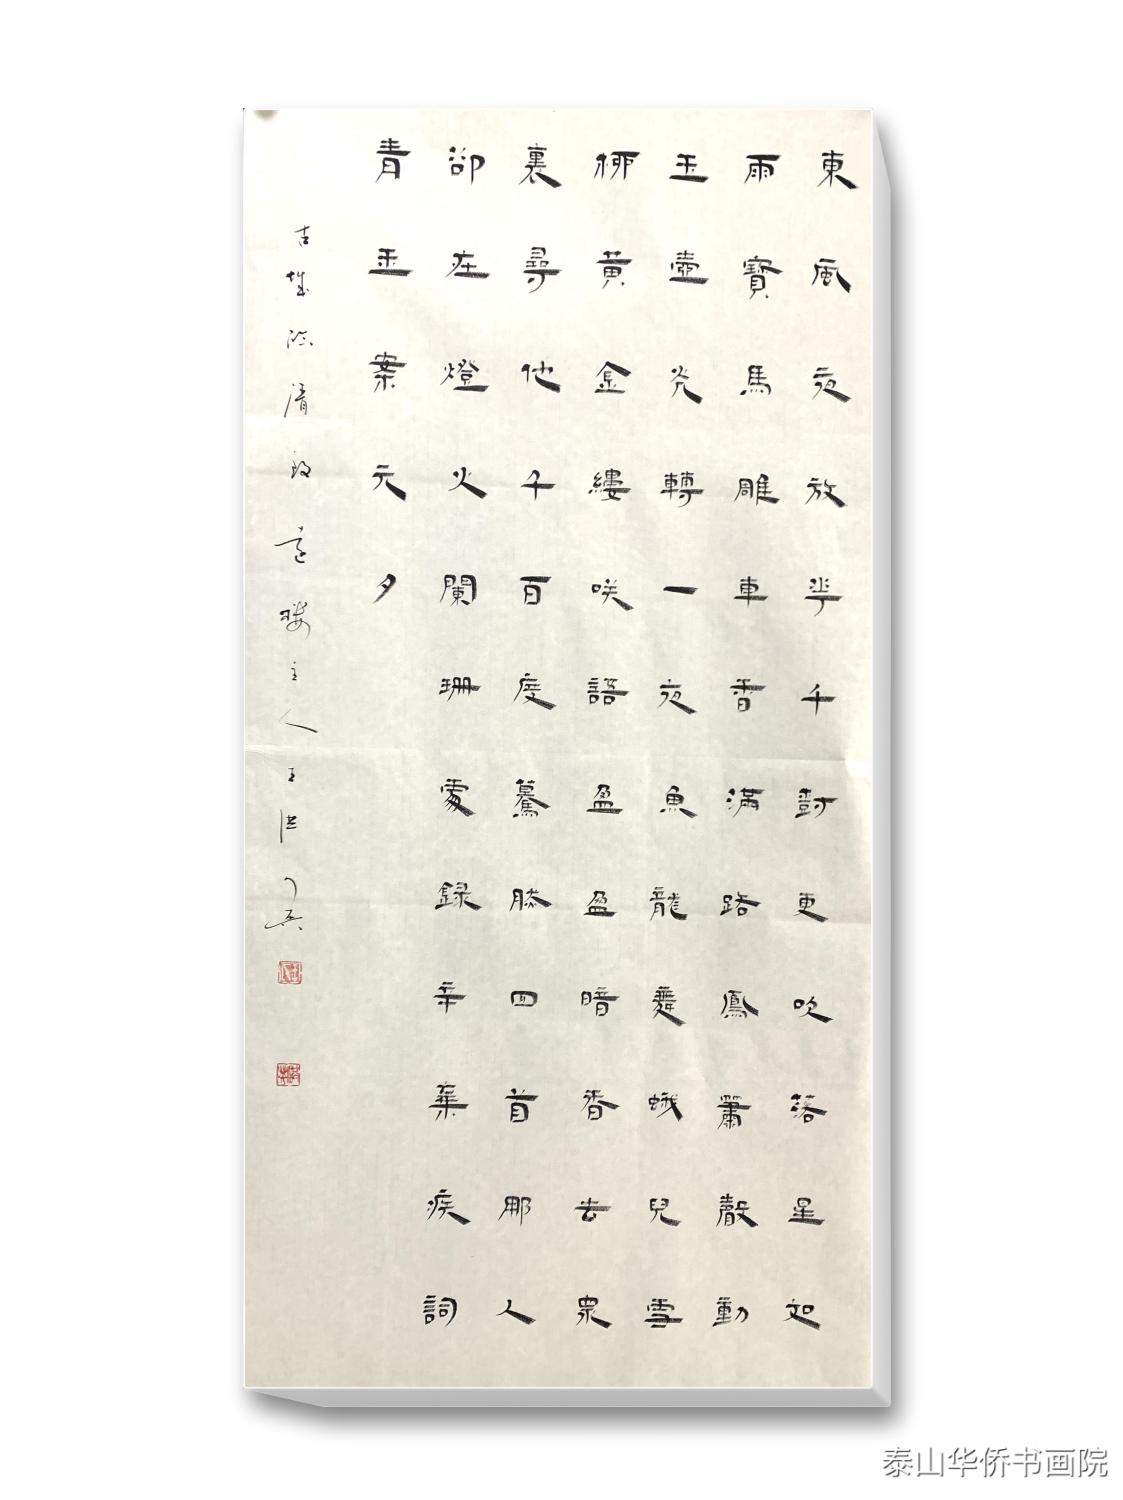 東風夜放華千樹更吹落星如
雨寶馬雕車香滿路鳳簫聲動
玉壺光轉一夜魚龍舞蛾兒雪
柳黃金縷咲語盈盈暗香去眾
裏尋他千百度驀然回首那人
卻在燈火闌珊處錄辛棄疾詞
青玉案元夕
古城臨清致遠樓主人王洪兵
泰山华侨书画院